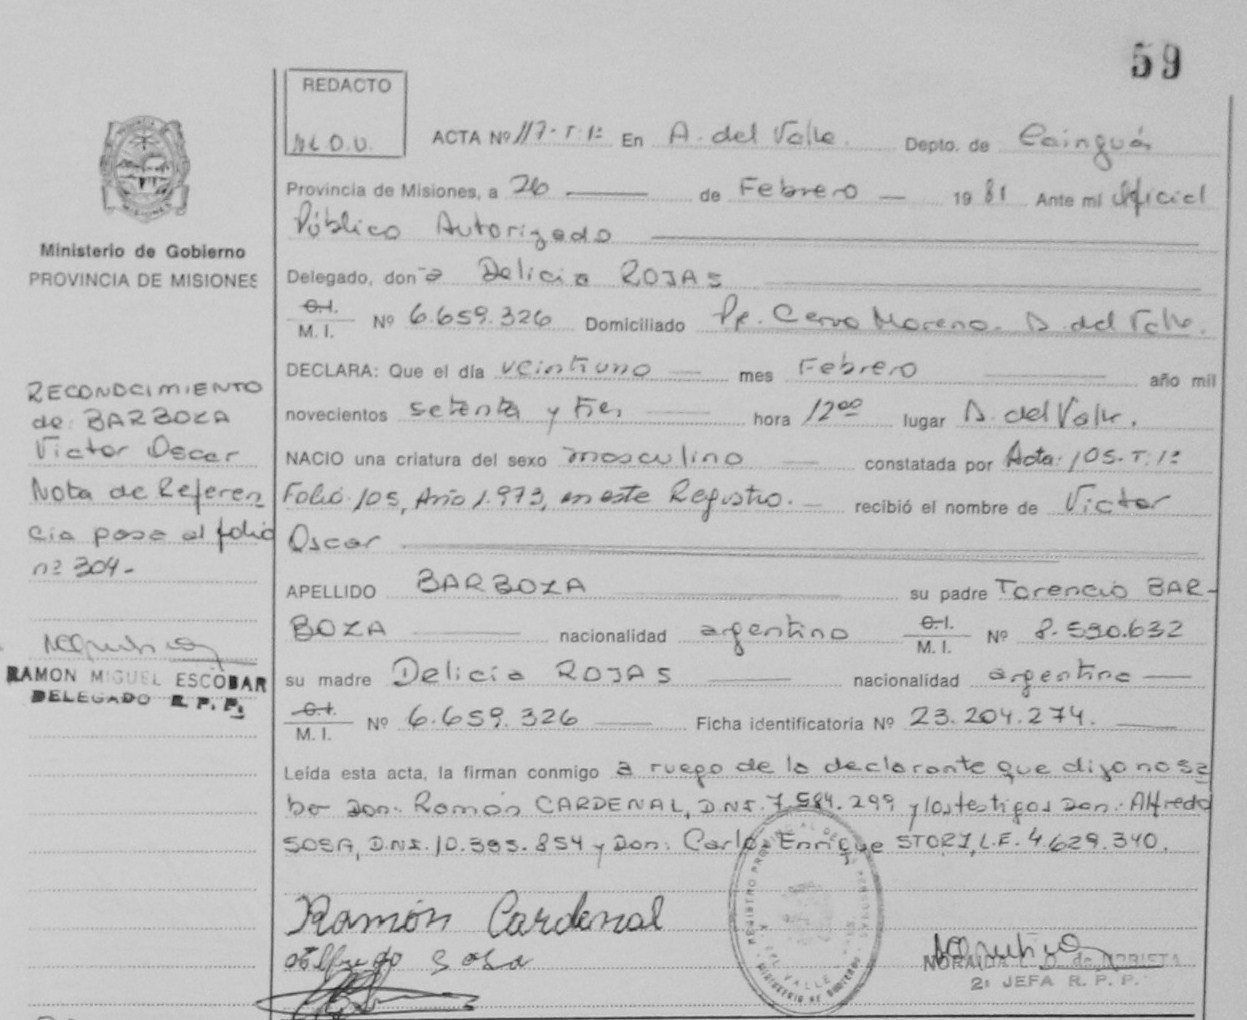 59
REDACTO
M.O.U.
ACTA Nº 117-T.1º En A. del Valle. Depto. de Cainguás
Provincia de Misiones, a 26 de Febrero 1981 Ante mí Oficial
Público Autorizado
Delegado, don-a Delicia ROJAS
C.I.
M. I. Nº 6.659.326 Domiciliado Pje. Cerro Moreno. A. del Valle.
DECLARA: Que el día veintiuno mes Febrero año mil
novecientos setenta y tres hora 12ºº lugar A. del Valle.
NACIO una criatura del sexo masculino constatada por Acta: 105-T.1º
Folio 105, Año 1.973, en este Registro. recibió el nombre de Victor
Oscar
APELLIDO BARBOZA su padre Torencio BAR-
BOZA nacionalidad argentino C.I.
M. I. Nº 8.590.632
su madre Delicia ROJAS nacionalidad argentina
C.I.
M. I. Nº 6.659.326 Ficha identificatoria Nº 23.204.274.
Leída esta acta, la firman conmigo a ruego de la declarante que dijo no sa
ber Don: Ramón CARDENAL, D.N.I. 7.584.299 y los testigos Don: Alfredo
SOSA, D.N.I. 10.395.854 y Don: Carlos Enrique STORI, L.E. 4.629.340.
Ramón Cardenal
Alfredo Sosa
2ª JEFA R. P. P.
PROVINCIA DE
MISIONES
Ministerio de Gobierno
PROVINCIA DE MISIONES
RECONOCIMIENTO
de: BARBOZA
Victor Oscar
Nota de Referen
cia pase al folio
nº 304-
RAMON MIGUEL ESCOBAR
DELEGADO R. P. P.